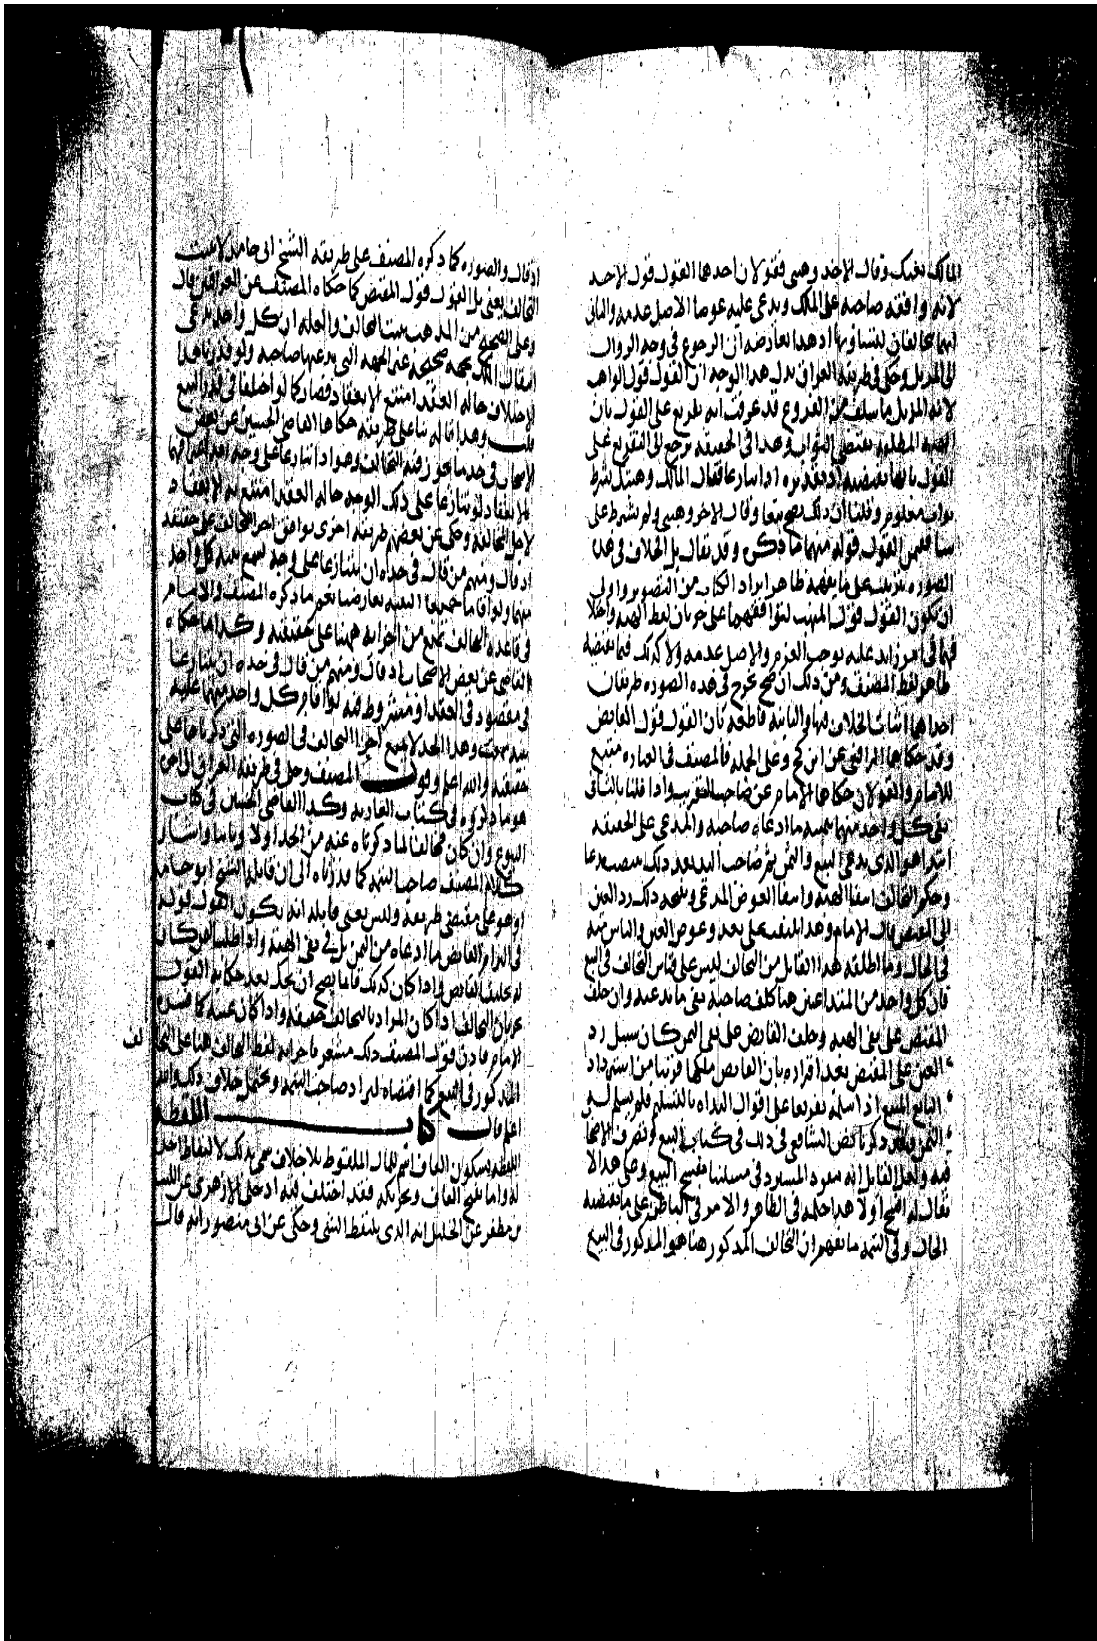 المالك بعتك وقال الاخذ وهبتنى فقولان احدهما القول قول الاخذ
لانه وافقه صاحبه على الملك ويدعى عليه عوضا الاصل عدمه والثانى
انهما يتحالفان لتساويهما اذ هذا تعارضه ان الرجوع فى وجه الزوال
الى المزيل وحكى فى طريقة العراق بدل هذا الوجه ان القول قول الواهب
لانه المزيل ما سلف من الفروع قد عرفت انه تفريع على القول بان
الهبة المطلقة تقتضى الثواب وهذا فى الحقيقة يرجع الى التفريع على
القول بانها تقتضيه اذا تنازعا فقال المالك وهبتك بشرط
ثواب معلوم وقلنا ان ذلك يصح بيعا وقال الاخر وهبتنى ولم تشرط على
شيا فمن القول قوله منهما ما ذكر وقد يقال بل الخلاف فى هذه
الصوره على ما يفهمه ظاهر ايراد الكتاب من التصوير واولى
ان يكون القول قول المتهب لتوافقهما على جريان لفظ الهبة واختلا
فهما فى امر زايد عليه يوجب الغرم والاصل عدمه ولا كذلك فيما يقتضيه
ظاهر لفظ المصنف ومن ذلك ان صح يخرج فى هذه الصوره طريقان
احداهما اثبات الخلاف فيها والثانية قاطعة بان القول قول القابض
وقد حكاهما الرافعى عن ابن كج وعلى الجملة فالمصنف فى العباره متبع
للامام والقولان حكاهما الامام عن صاحب التقريب واذا قلنا بالثانى
نفى كل واحد منهما بيمينه ما ادعاه صاحبه والمدعى على الحقيقة
ابتدا هو الذى يدعى البيع والثمن
وحكم التحالف انتفا الهبة وانتفا العوض المدعى ونتيجة ذلك رد العين
الى المقبض قال الامام وهذا ملتفت على بعد وعوض العين والناس منه
فى الحال وما اطلقه هذا القايل من التحالف ليس على قياس التحالف فى البيع
فان كل واحد من المتداعيين هنا يحلف صاحبه نفى ما يدعيه وان حلف
المقبض على نفى الهبة وحلف القابض على نفى الثمن كان سبيل رد
العين على المقبض بعد اقراره بان القابض ملكها قريبا من استرداد
البايع المبيع اذا سلمه تفريعا على اقوال البداه بالتسليم فلم يسلم له
الثمن وقد ذكرنا نص الشافعى فى ذلك فى كتاب البيع وتصرف الاصحاب
فيه ولعل القايل انه يعود المسترد فى مسلتنا بفسخ البيع وعلى هذا لا
يقال له افسخ اولا هذا حكمه فى الظاهر والامر فى الباطن على ما يقتضيه
الحال وفى التتمة ما يفهم ان التحالف المذكور هنا هو المذكور فى البيع
اذ قال والصوره كما ذكره المصنف على طريقة الشيخ ابى حامد لا يثبت
التحالف يعنى بل القول قول المقبض كما حكاه المصنف عن العراقيين قال
وعلى الصحيح من المذهب يثبت التحالف والعله ان كل واحد يدعى
انتقال الملك بجهة صحيحة غير الجهة التى يدعيها صاحبه ولو قدرنا هذا
الاختلاف حالة العقد امتنع الانعقاد فصار كما لو اختلفا فى قدر المبيع
قلت وهذا قاله بنا على طريقة حكاها القاضى الحسين عن بعض
الاصحاب فى حد ما يجوز فيه التحالف وهو اذا تنازعا على وجه
الانعقاد لو تنازعا على ذلك الوجه حالة العقد امتنع به الانعقاد
لاجل المخالفة وحكى عن بعضهم طريقة اخرى توافق اجرا التحالف على حقيقته
اذ قال ومنهم من قال فى حده ان يتنازعا على وجه تسمع بينة كل واحد
منهما ولو اقاما جميعا البينه تعارضتا نعم ما ذكره المصنف والامام
فى قاعدة التحالف يمنع من اجرايه ههنا على حقيقته وكذا ما حكاه
القاضى عن بعض الاصحاب اذ قال ومنهم من قال فى حده ان يتنازعا
فى مقصود فى العقد او مشروط فيه لو اقام كل واحد منهما عليه
بينة سمعت وهذا الحد لا يمنع اجرا التحالف فى الصوره التى ذكرناها على
حقيقته والله اعلم وقول المصنف وحكى فى طريقة العراق الى اخره
هو ما ذكروه فى كتاب العارية وكذا القاضى الحسين فى كتاب
البيوع وان كان مخالفا لما ذكرناه عنه من الحد اولا وثانيا واشار
كلام المصنف صاحب التتمة كما قدرناه الى ان قايله الشيخ ابو حامد
او هو على مقتضى طريقة وليس يعنى قايله انه يكون القول قوله
فى الزام القابض ما ادعاه من الثمن بل فى نفى الهبة واذا طلب الثمن كان
له تحليف القابض واذا كان كذلك فانما يصح ان يحكى بعد حكاية القول
بجريان التحالف اذا كان المراد بالتحالف حقيقته واذا كان عينه كما فسره
الامام فاذن قول المصنف ذلك مشعر باجرايه لفظ التحالف هنا على التحا
لف
المذكور فى البيع كما اقتضاه ايراد صاحب التتمة ويحتمل خلاف ذلك والله
اعلم قال كتاب اللقطة
اللقطه بسكون القاف اسم للمال الملقوط بلا خلاف سمى بذلك لالتقاط اخذ
له واما بفتح القاف وتحريكه فقد اختلف فيه اذ حكى الازهرى عن الليث
بن مظفر عن الخليل انه الذى يلتقط الشى وحكى عن ابى منصور انه قال